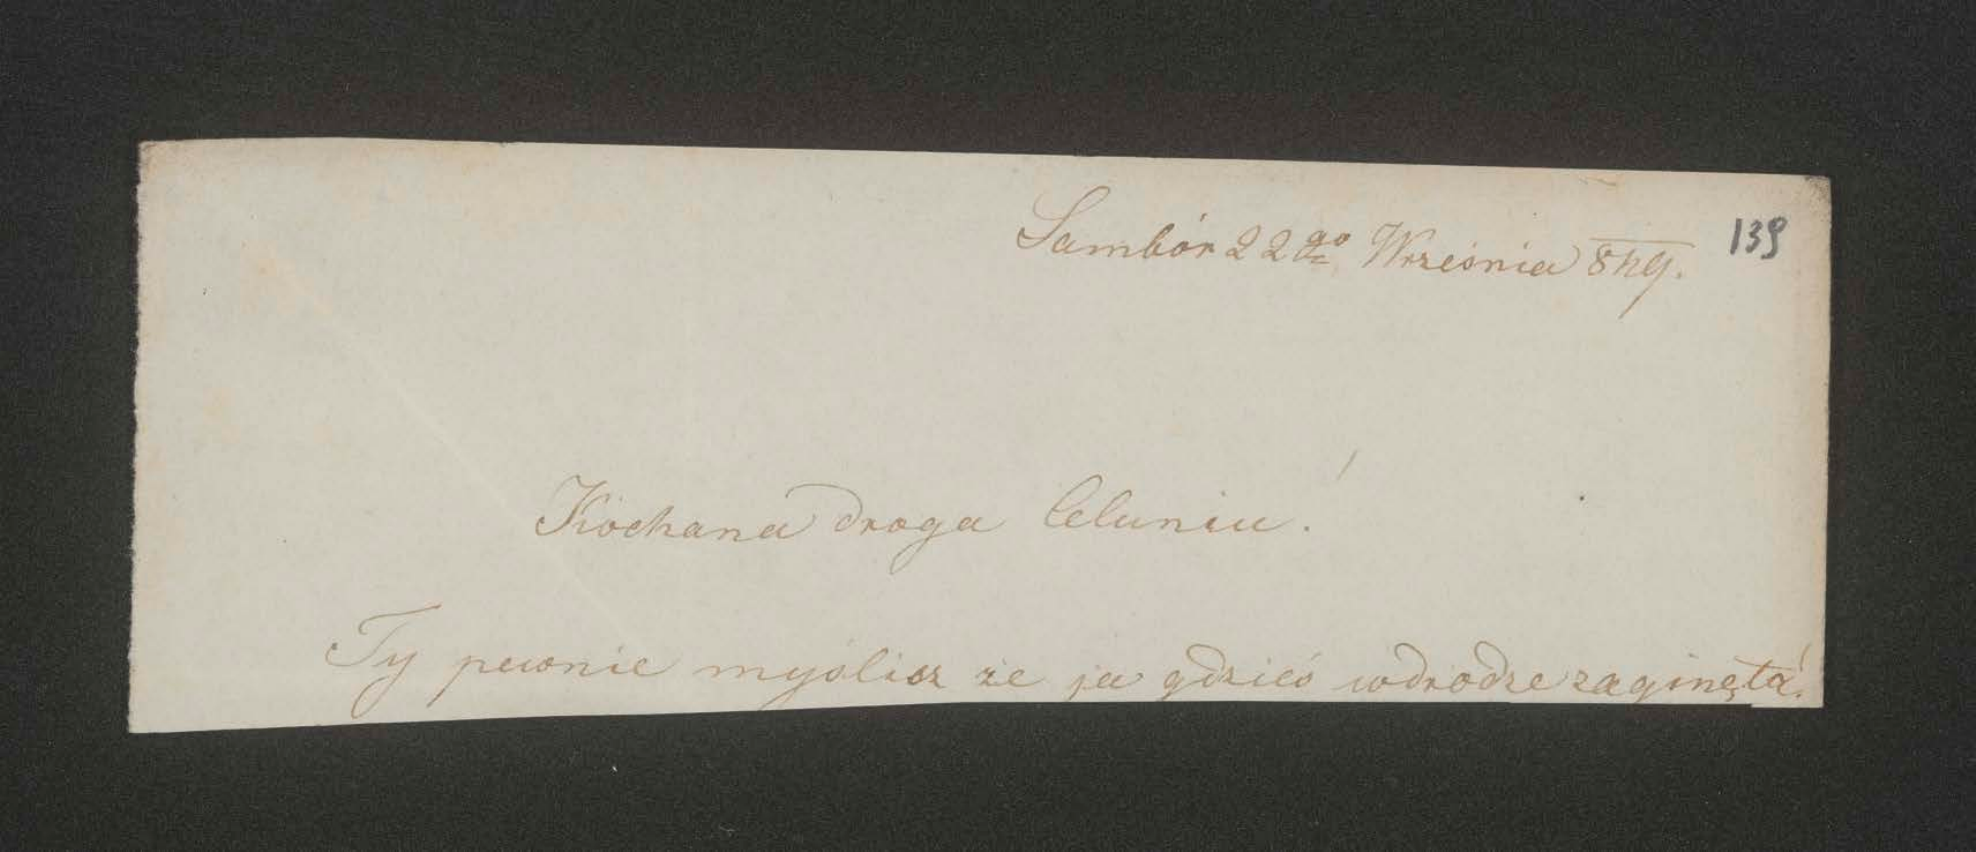 Sambór 22go Września 849. 139
Kochana droga Celuniu!
Ty pewnie myślisz że ja gdzieś wdrodze zaginęła!